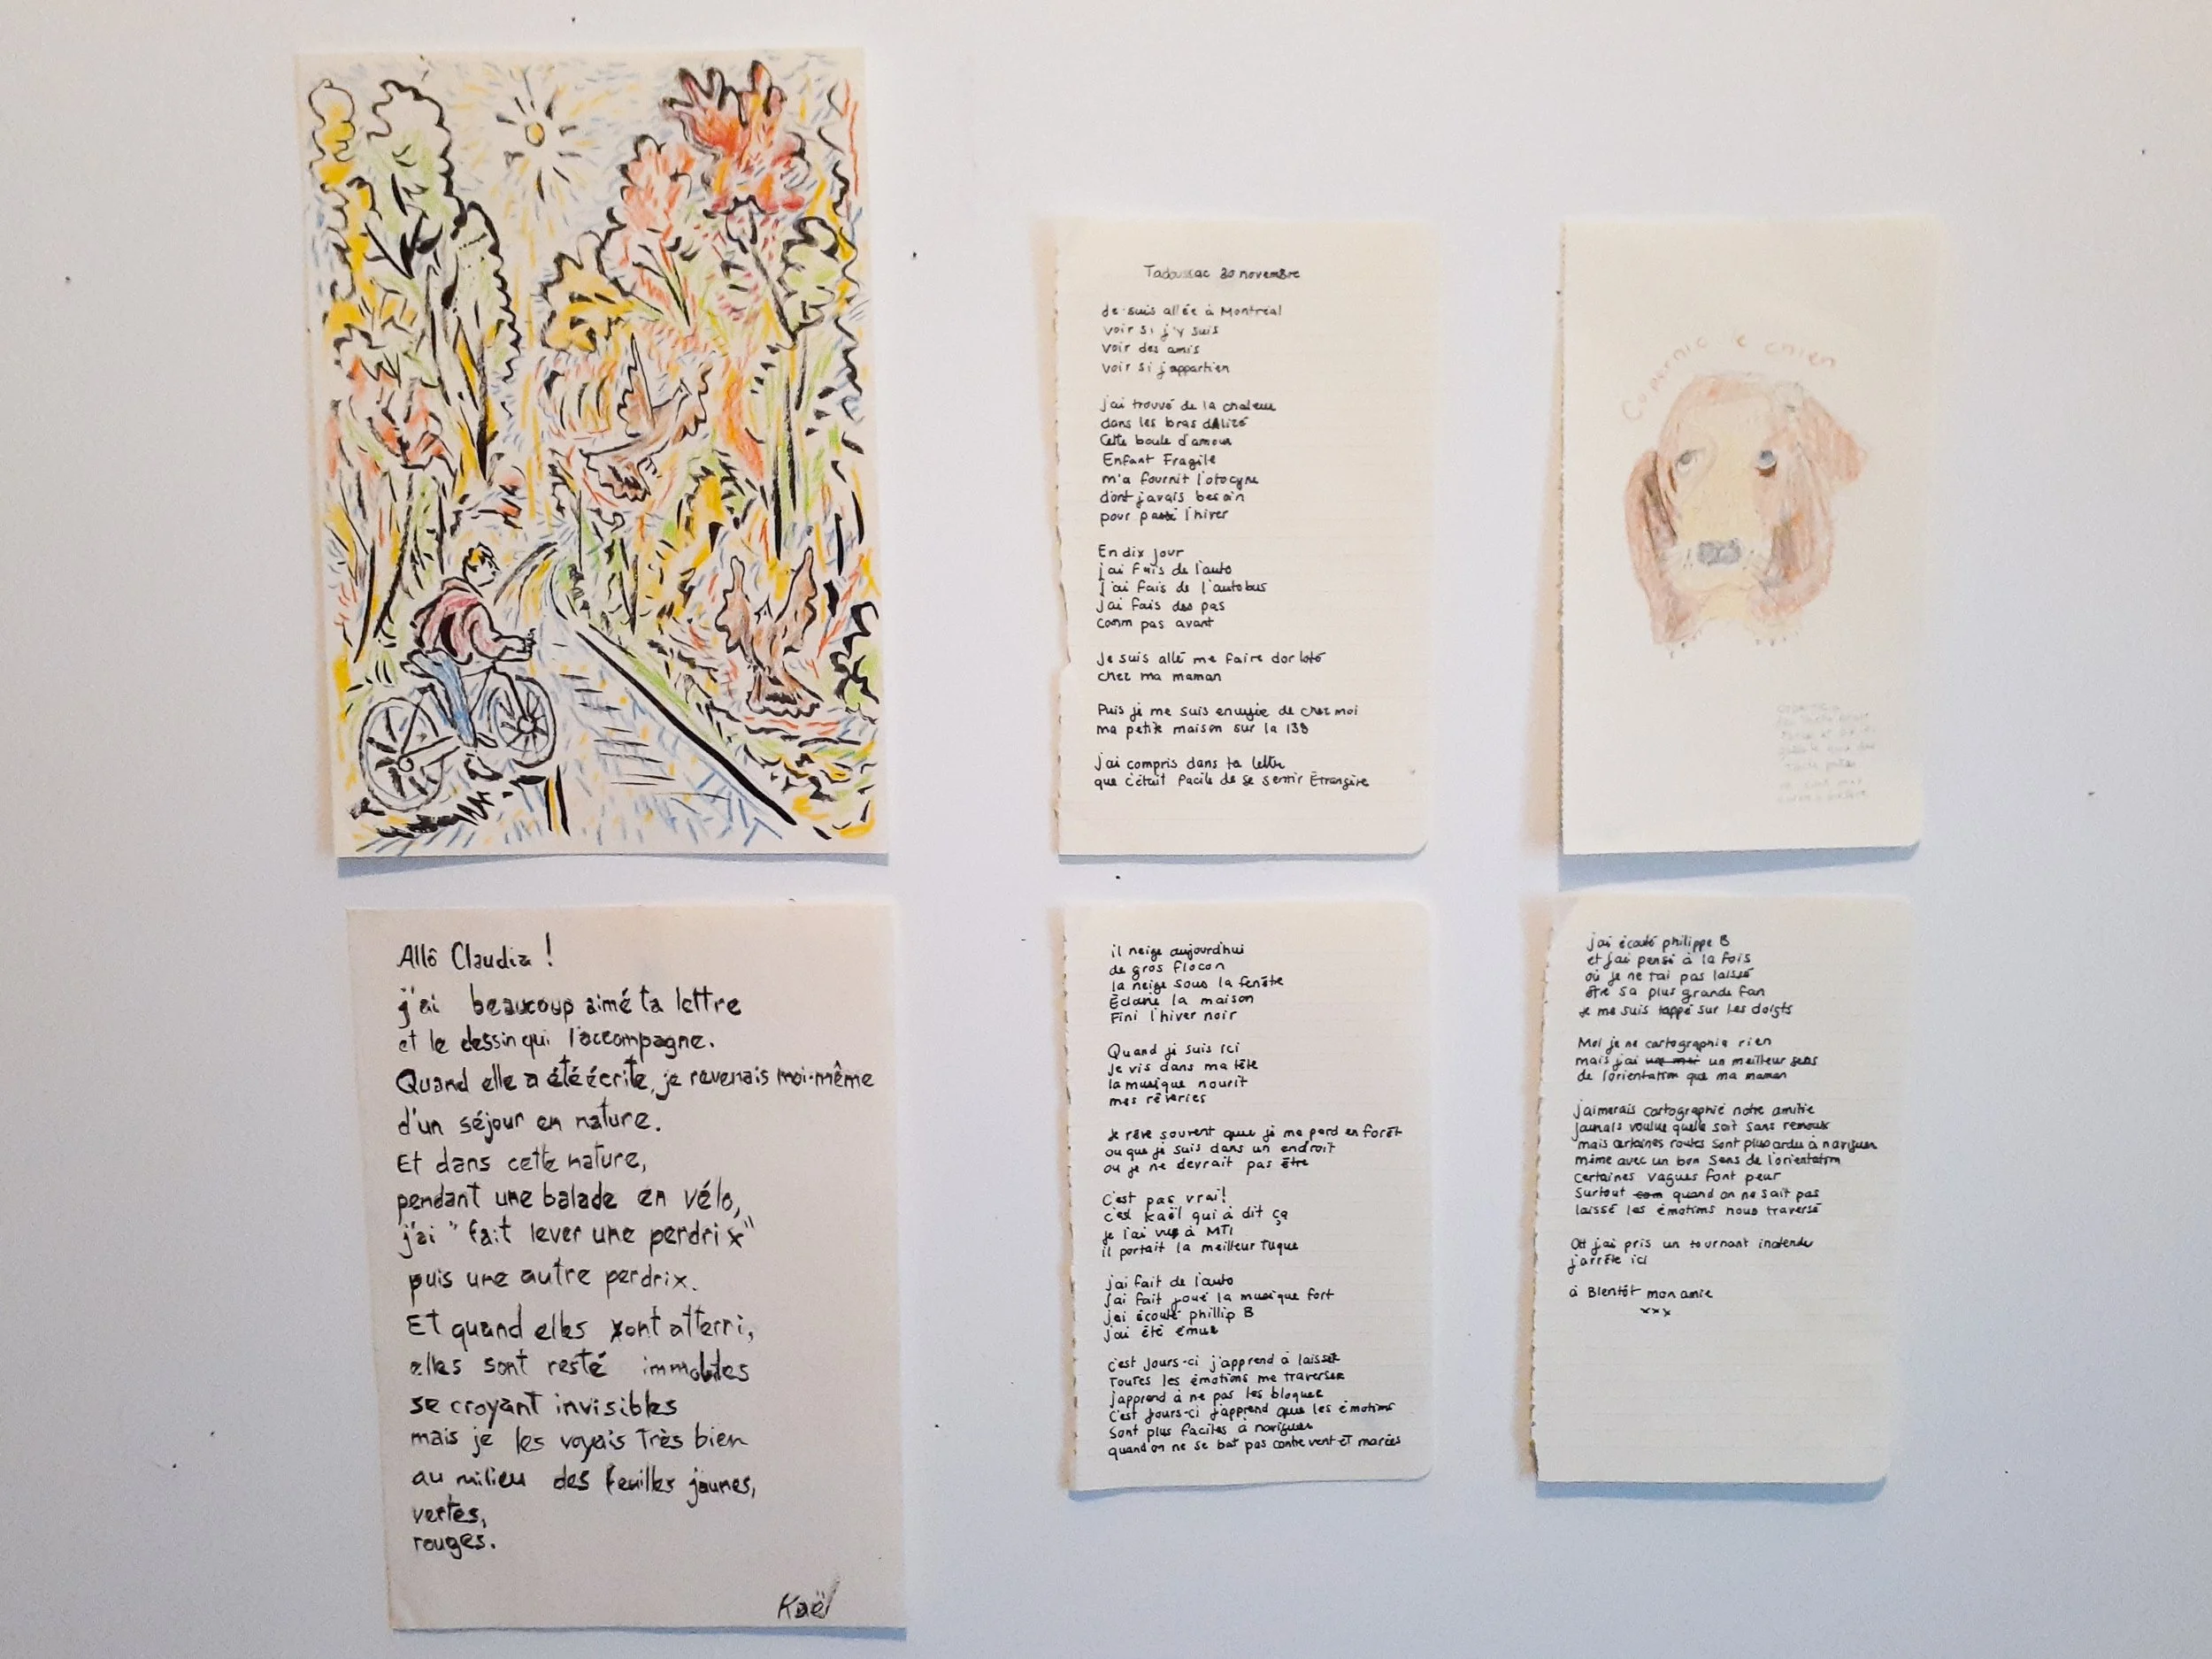 Allô Claudia !
j'ai beaucoup aimé ta lettre
et le dessin qui l'accompagne.
Quand elle a été écrite, je revenais moi-même
d'un séjour en nature.
Et dans cette nature,
pendant une balade en vélo,
j'ai "fait lever une perdrix"
puis une autre perdrix.
Et quand elles sont atterri,
elles sont resté immobiles
se croyant invisibles
mais je les voyais très bien
au milieu des feuilles jaunes,
vertes,
rouges.
Kaël
Tadoussac 30 novembre
Je suis allée à Montréal
voir si j'y suis
voir des amis
voir si j'appartien
j'ai trouvé de la chaleur
dans les bras d'Alizé
Cette boule d'amour
Enfant Fragile
m'a fournit l'otocyne
dont j'avais besoin
pour passé l'hiver
En dix jour
j'ai fais de l'auto
j'ai fais de l'autobus
j'ai fais des pas
comm pas avant
Je suis allé me faire dorloté
chez ma maman
Puis je me suis ennuyée de chez moi
ma petite maison sur la 138
j'ai compris dans ta lettre
que c'était facile de se sentir Étrangère
il neige aujourd'hui
de gros flocon
la neige sous la fenêtre
Éclaire la maison
Fini l'hiver noir
Quand je suis ici
je vis dans ma tête
la musique nourit
mes rêveries
Je rêve souvent que je me perd en forêt
ou que je suis dans un endroit
ou je ne devrait pas être
C'est pas vrai!
c'est Kaël qui à dit ça
je l'ai vus à MTL
il portait la meilleur tuque
j'ai fait de l'auto
j'ai fait joué la musique fort
j'ai écouté phillip B
j'ai été émue
c'est jours-ci j'apprend à laisser
toutes les émotions me traverser
j'apprend à ne pas les bloquer
C'est jours-ci j'apprend que les émotions
sont plus faciles à naviguer
quand on ne se bat pas contre vent et marées
Copernic le chien
j'ai écouté philippe B
et j'ai pensé à la fois
où je ne t'ai pas laissé
être sa plus grande fan
je me suis tappé sur les doigts
Moi je ne cartographie rien
mais j'ai un meilleur sens
de l'orientation que ma maman
j'aimerais cartographié notre amitié
jamais voulue quelle soit sans remous
mais certaines routes sont plus ardu à naviguer
même avec un bon sens de l'orientation
certaines vagues font peur
surtout quand on ne sait pas
laissé les émotions nous traversé
Oh j'ai pris un tournant inatendu
j'arrête ici
à Bientôt mon amie
xxx